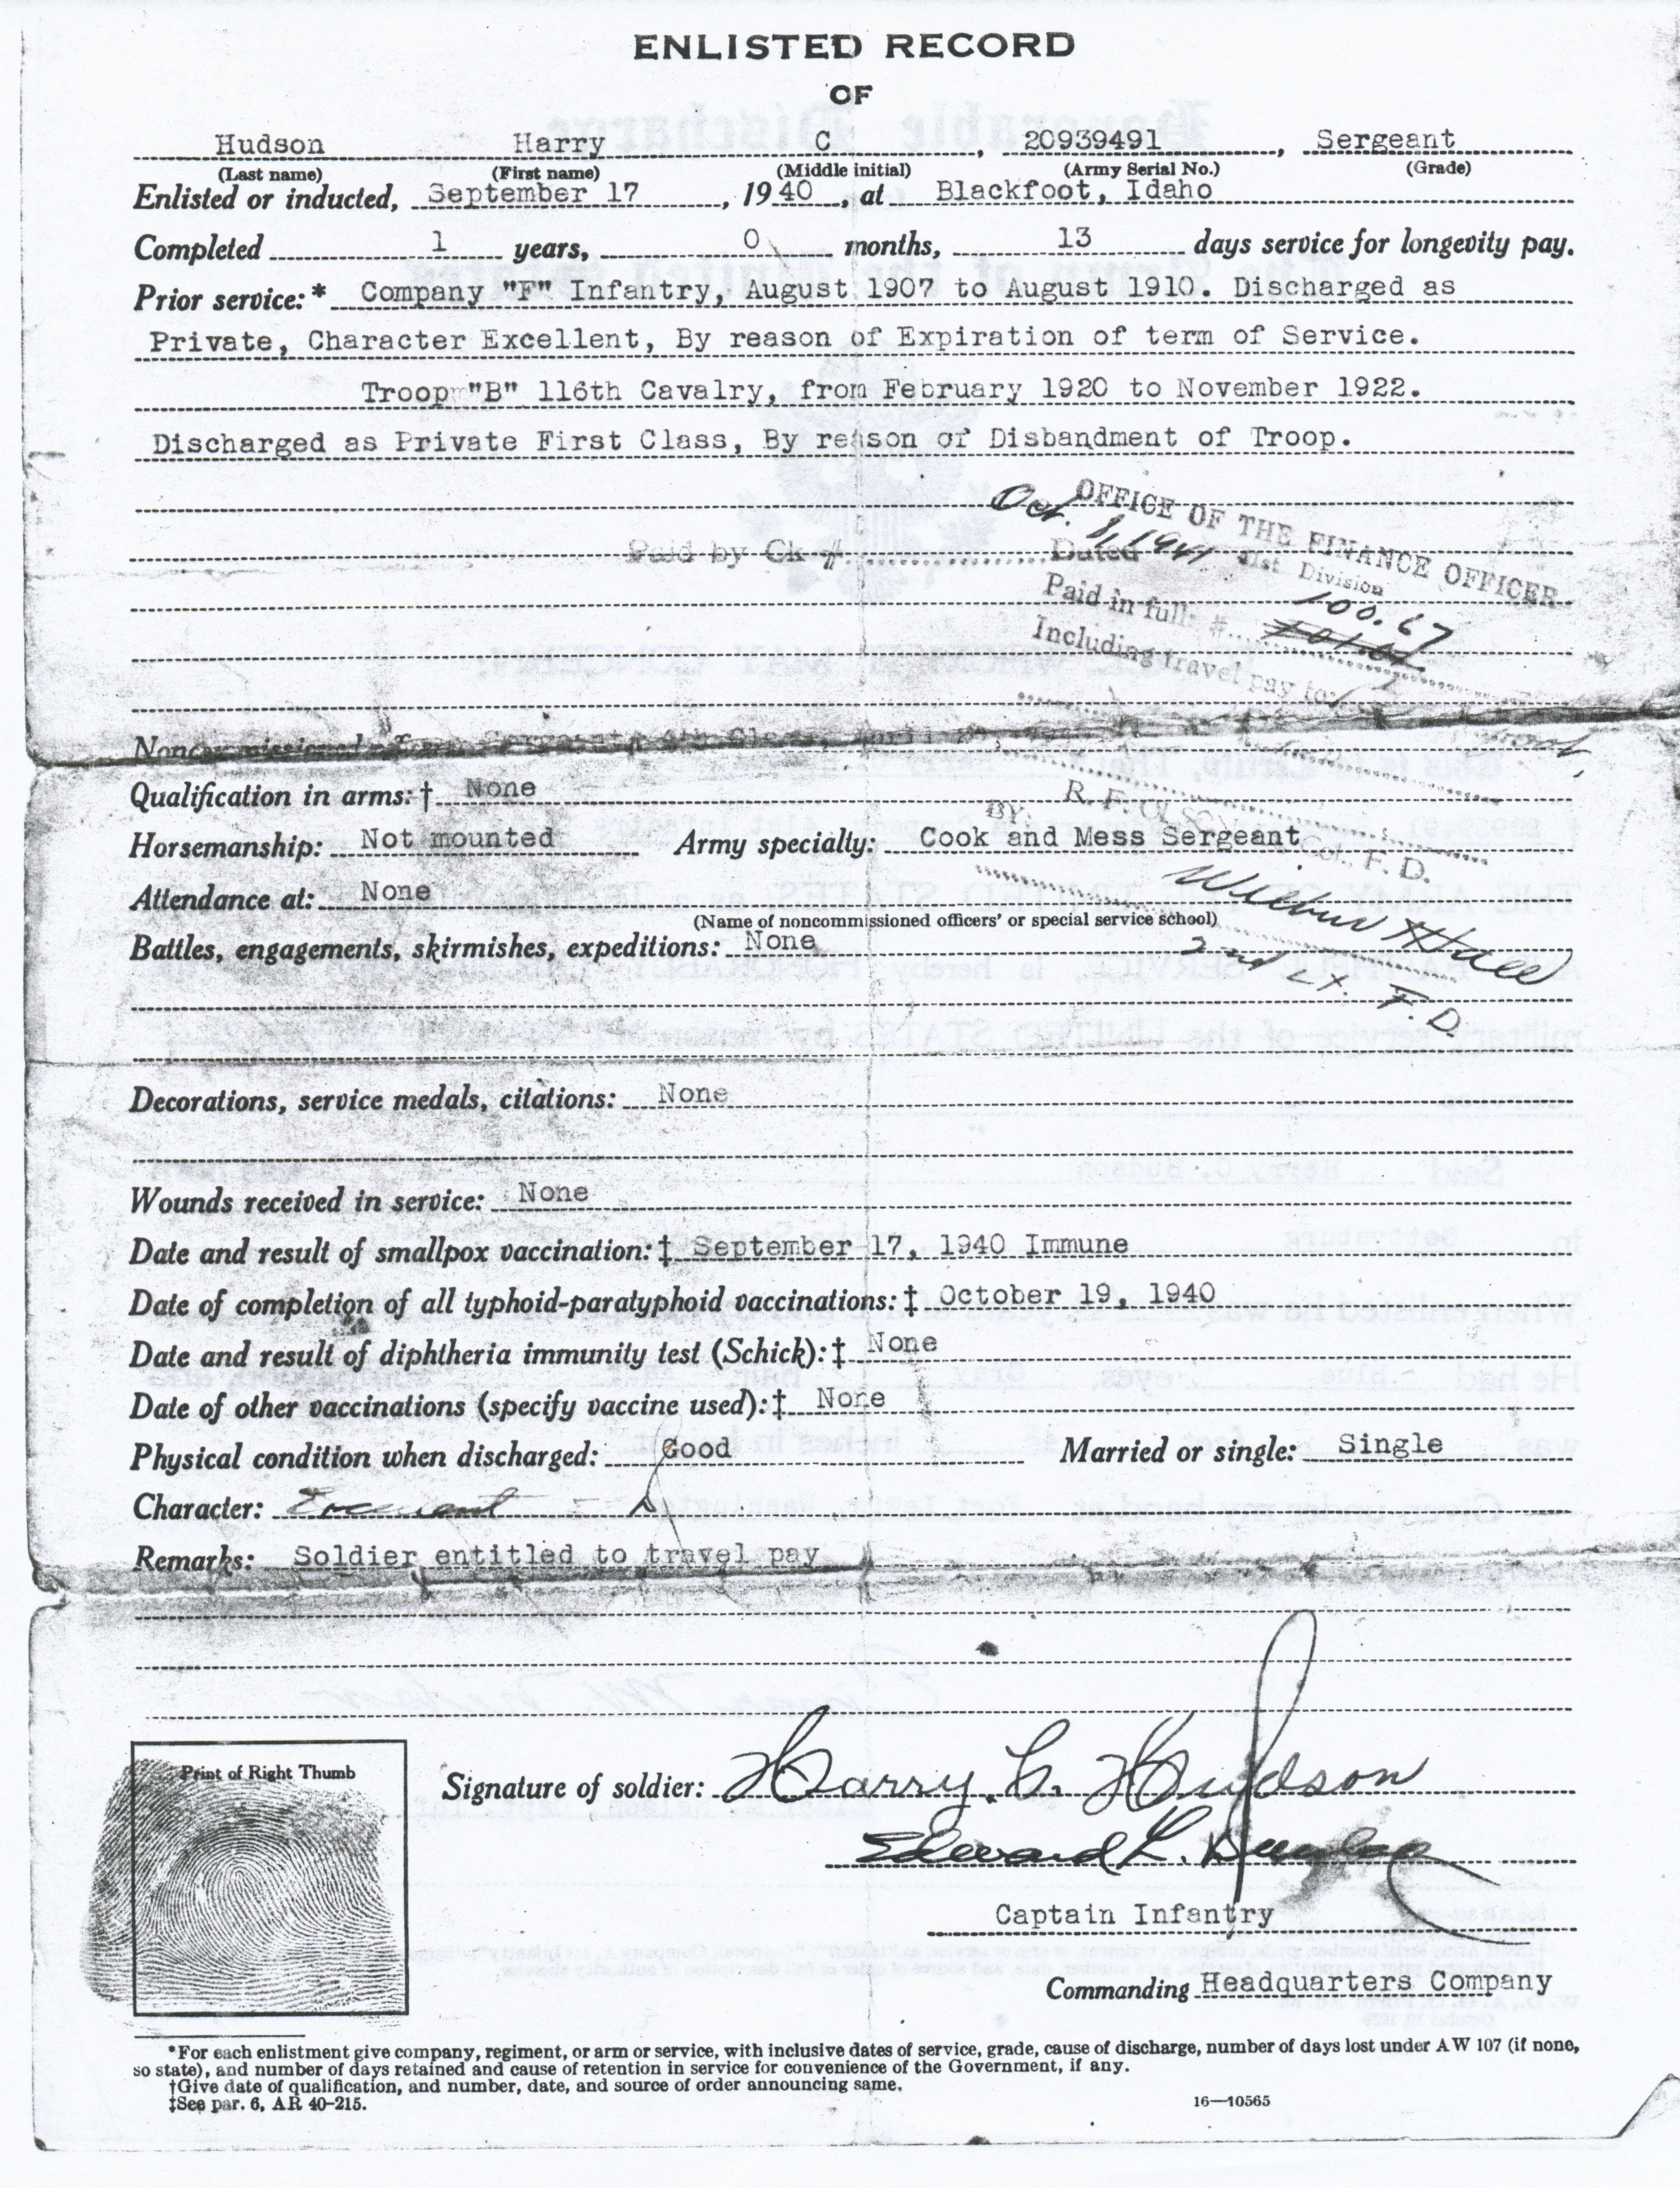 ENLISTED RECORD
OF
Hudson Harry C , 20939491 , Sergeant
(Last name) (First name) (Middle initial) (Army Serial No.) (Grade)
Enlisted or inducted, September 17 , 1940 , at Blackfoot, Idaho
Completed 1 years, 0 months, 13 days service for longevity pay.
Prior service:* Company "F" Infantry, August 1907 to August 1910. Discharged as
Private, Character Excellent, By reason of Expiration of term of Service.
Troop "B" 116th Cavalry, from February 1920 to November 1922.
Discharged as Private First Class, By reason of Disbandment of Troop.
OFFICE OF THE FINANCE OFFICER
41st Division
Paid by Ck # Dated Oct. 1, 1941
Paid in full: # 100.67
Including travel pay to:
Noncommissioned officer: Sergeant 4th Class, April
Qualification in arms:† None
BY: R. F. OLSEN
Col., F. D.
Horsemanship: Not mounted Army specialty: Cook and Mess Sergeant
Attendance at: None
(Name of noncommissioned officers' or special service school)
Wilbur Hall
2nd Lt. F. D.
Battles, engagements, skirmishes, expeditions: None
Decorations, service medals, citations: None
Wounds received in service: None
Date and result of smallpox vaccination:‡ September 17, 1940 Immune
Date of completion of all typhoid-paratyphoid vaccinations:‡ October 19, 1940
Date and result of diphtheria immunity test (Schick):‡ None
Date of other vaccinations (specify vaccine used):‡ None
Physical condition when discharged: Good Married or single: Single
Character: Excellent
Remarks: Soldier entitled to travel pay
Print of Right Thumb
Signature of soldier: Harry C. Hudson
Edward L.
Captain Infantry
Commanding Headquarters Company
*For each enlistment give company, regiment, or arm or service, with inclusive dates of service, grade, cause of discharge, number of days lost under AW 107 (if none,
so state), and number of days retained and cause of retention in service for convenience of the Government, if any.
†Give date of qualification, and number, date, and source of order announcing same.
‡See par. 6, AR 40-215.
16—10565